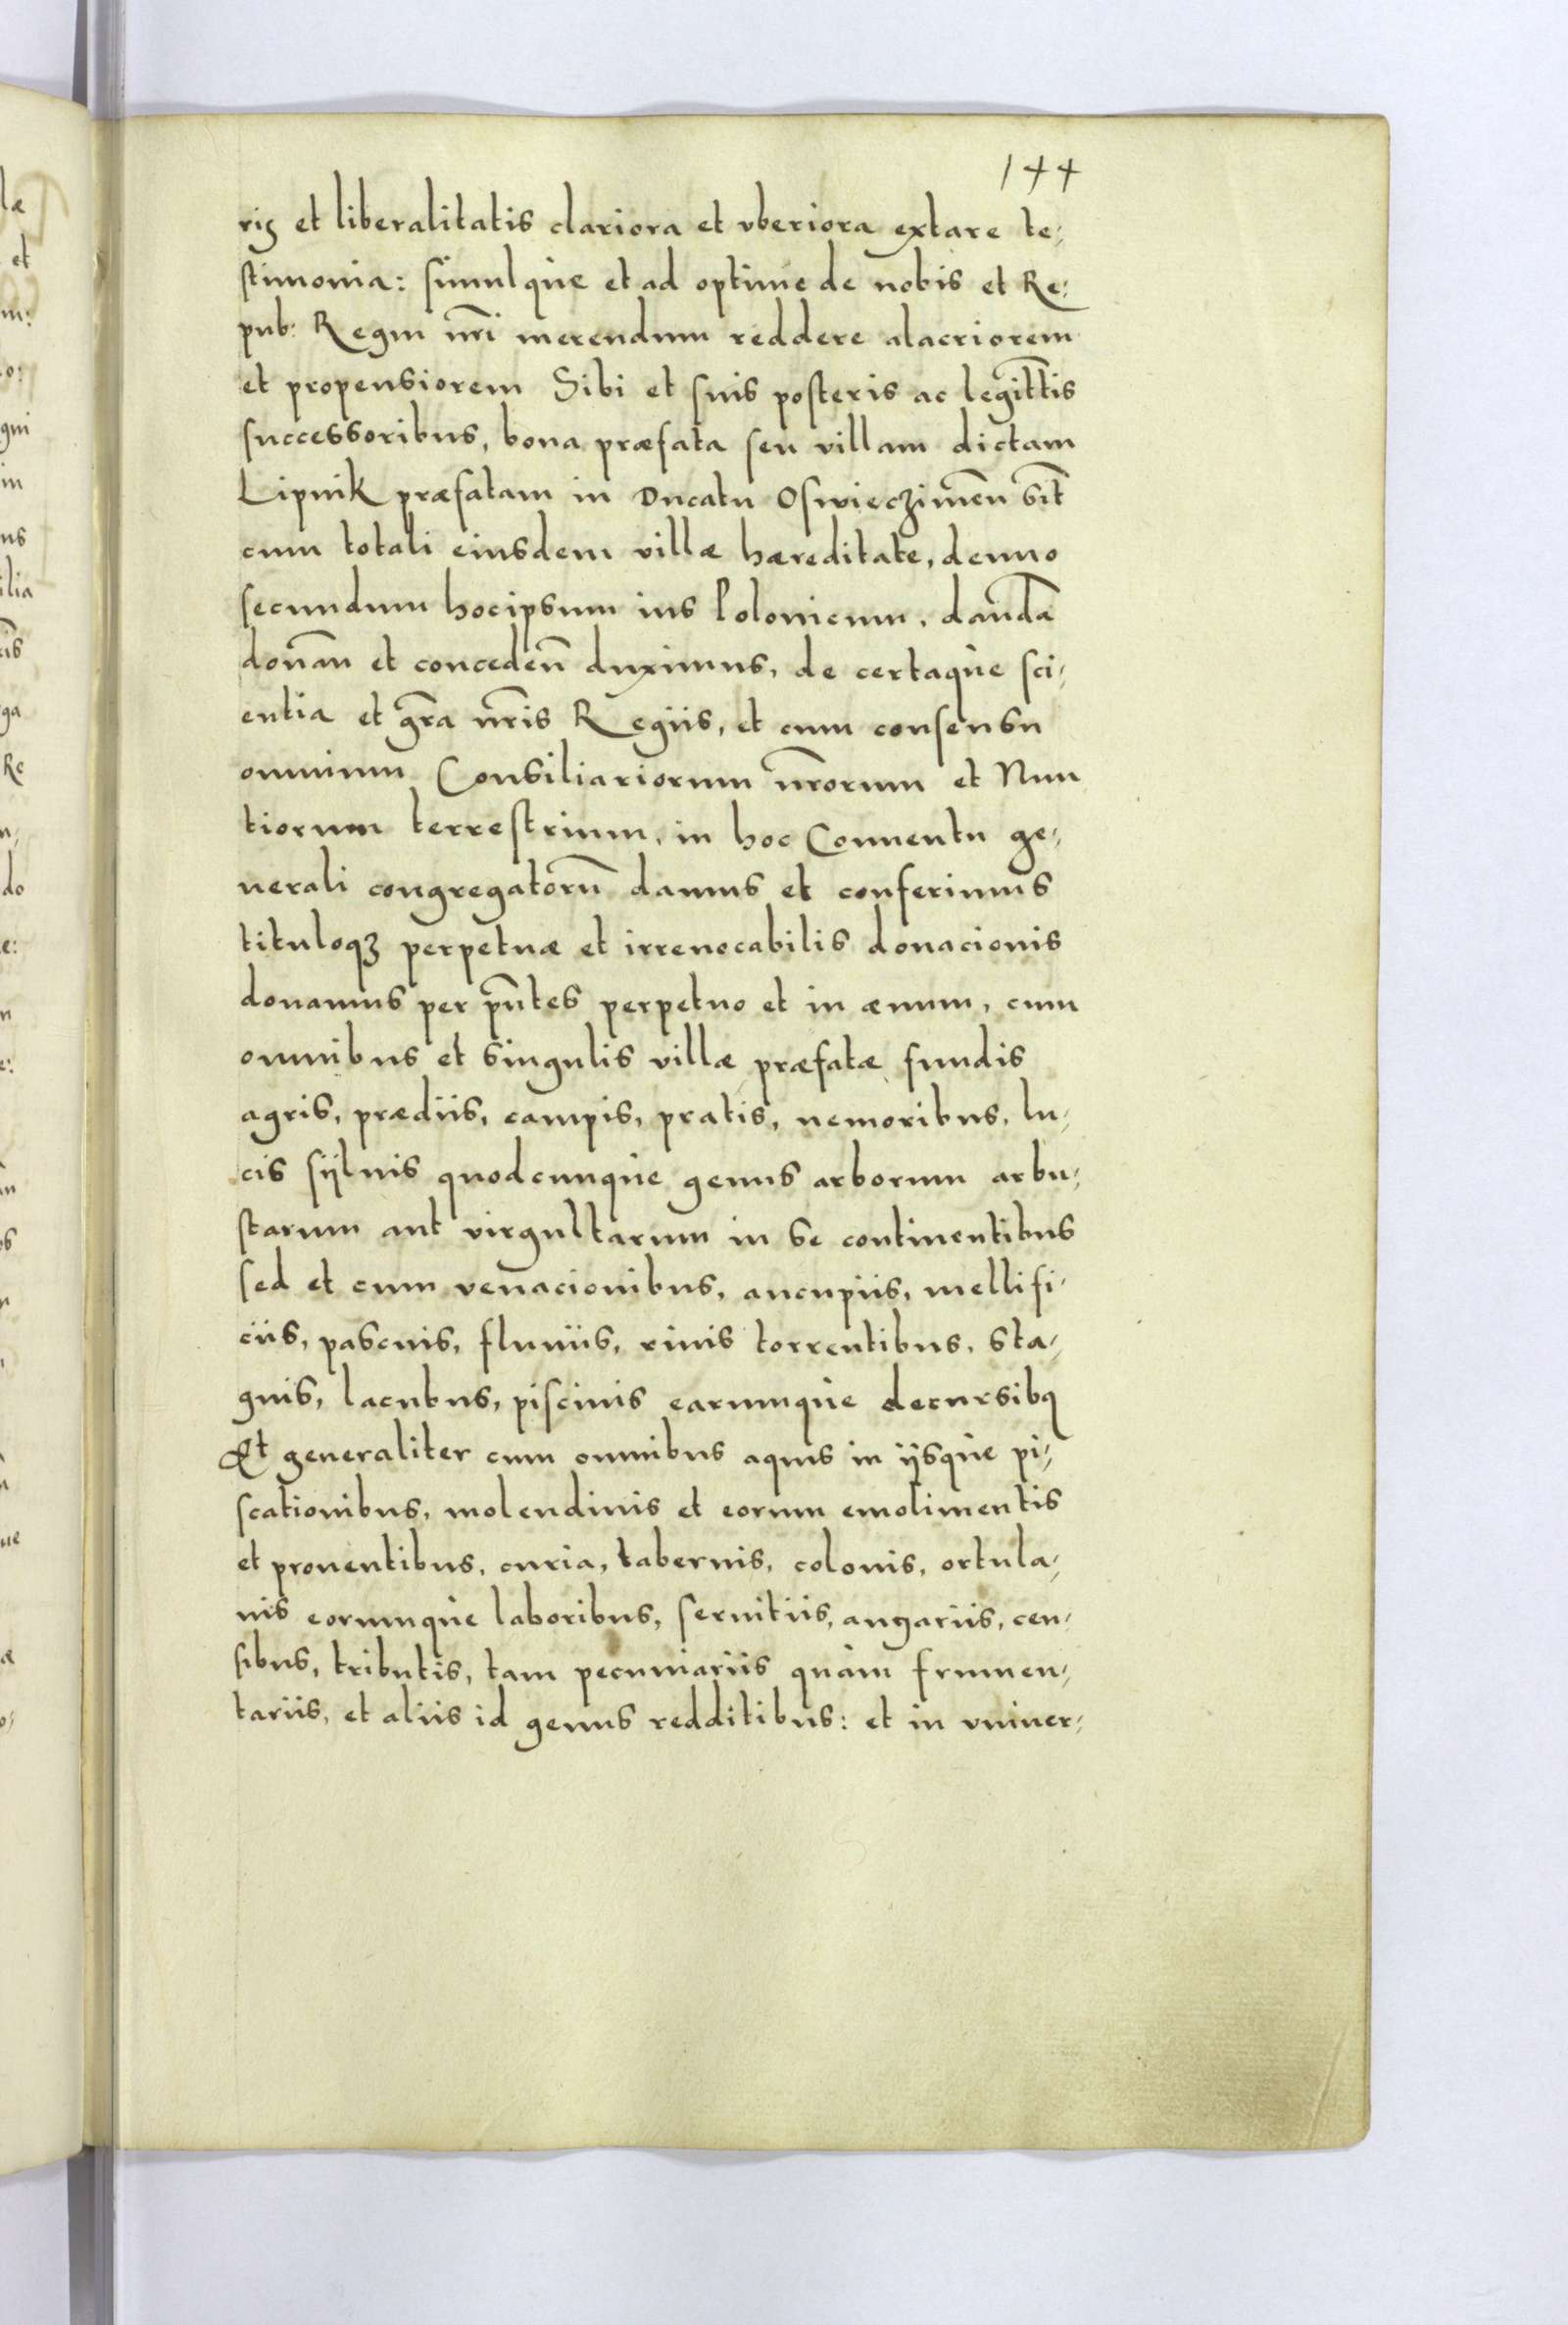 144
ris et liberalitatis clariora et vberiora extare te:
stimonia: simulque et ad optime de nobis et Re:
pub: Regni nr̃i merendum reddere alacriorem
et propensiorem Sibi et suis posteris ac legitt̃is
successoribus, bona præfata seu villam dictam
Lipnik præfatam in Ducatu Oswieczimen̄ sit̃
cum totali eiusdem villæ hæreditate, denuo
secundum hocipsum ius Polonicum, dand̃a
donãn et conceden̄ duximus, de certaque sci,
entia et gr̃a nr̃is Regiis, et cum consensu
omnium Consiliariorum nr̃orum et Nun
tiorum terrestrium, in hoc Conuentu ge,
nerali congregatorũ damus et conferimus
tituloqꝫ perpetuæ et irreuocabilis donacionis
donamus per pñtes perpetuo et in æuum, cum
omnibus et singulis villæ præfatæ fundis
agris, prædiis, campis, pratis, nemoribus, lu,
cis sÿluis quodcunque genus arborum arbu,
starum aut virgultarum in se continentibus
sed et cum venacionibus, aucupiis, mellifi,
ciis, pascuis, fluuiis, riuis torrentibus, sta,
gnis, lacubus, piscinis earumque decursibꝯ
Et generaliter cum omnibus aquis in iisque pi,
scationibus, molendinis et eorum emolimentis
et prouentibus, curia, tabernis, colonis, ortula,
nis eorumque laboribus, seruitiis, angariis, cen,
sibus, tributis, tam pecuniariis quàm frumen,
tariis, et aliis id genus redditibus: et in vniuer,